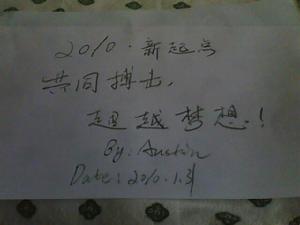 2010·新起点
共同搏击,
超越梦想.!
By: Austin
Date: 2010.1.31